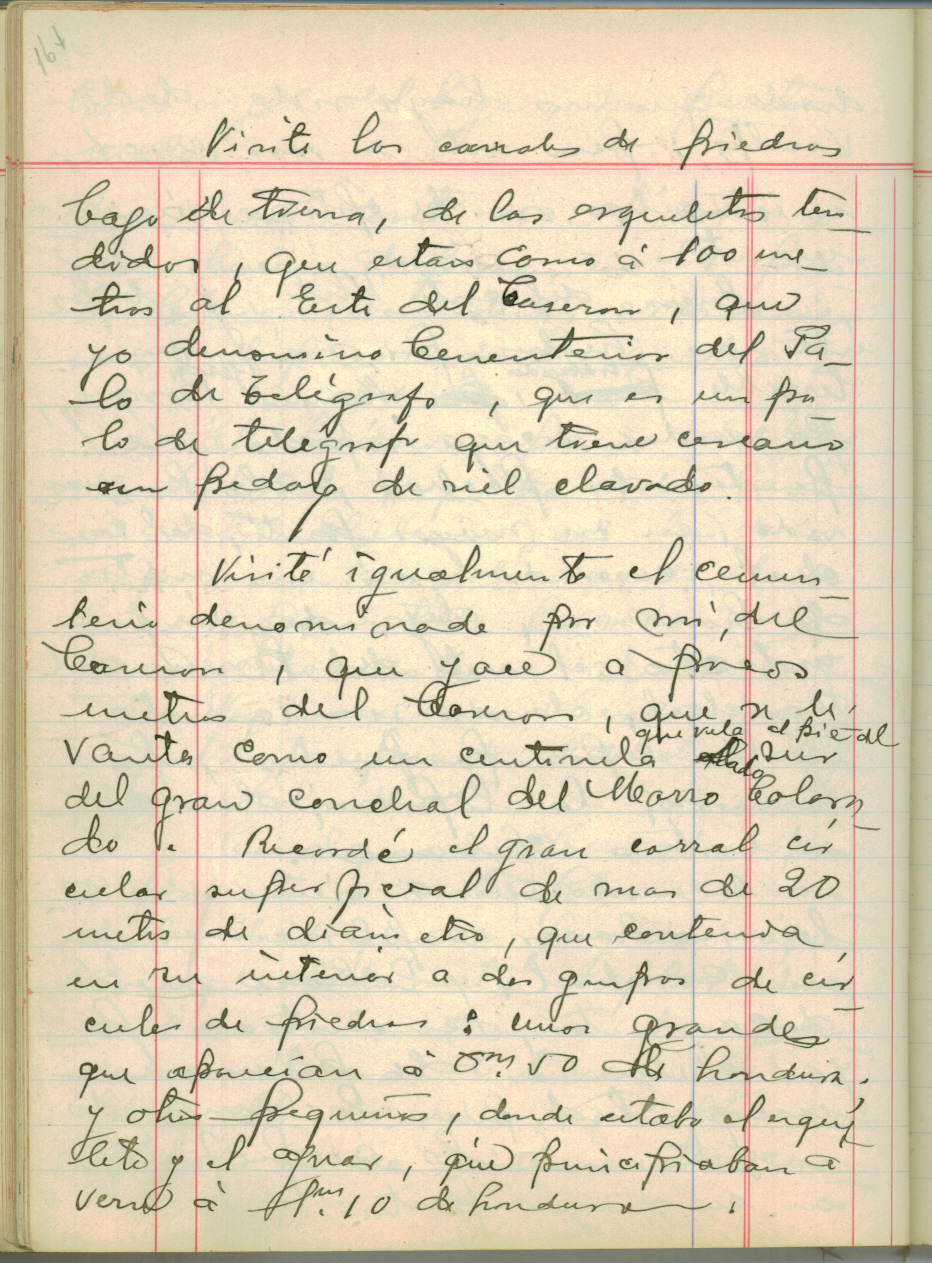 164
Visité los corrales de piedras
bago de tierra, de los esqueletos ten
didos, que estan como à 100 me-
tros al Este del Caseron, que
yo denomino Cementerios del Pa-
lo de telégrafo, que es un pa
lo de telegrafo que tiene cercano
un pedazo de riel clavado.
Visité igualmente el cemen
terio denominado por mi, del
Caseron, que yace a pocos
metros del Caseron, que se le-
que vela el pie del
vanta como un centinela lado sur
del gran conchal del Morro Colora
do. Recordé el gran corral cir
cular superficial de mas de 20
metros de diámetro, que contenia
en su interior a dos grupos de cir
culos de piedras: unos grandes
que aparecian à 0m.50 de hondura,
y otros pequeños, donde estaba el esque
leto y el ajuar, que principiaban a
verse à 1m.10 de hondura.